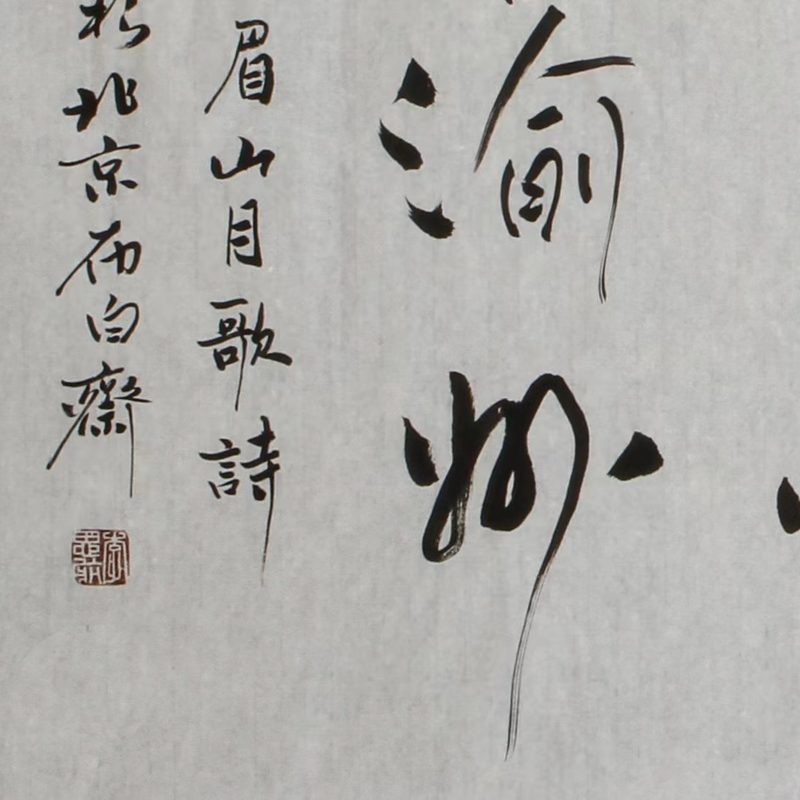 渝州
眉山月歌詩
於北京布白齋